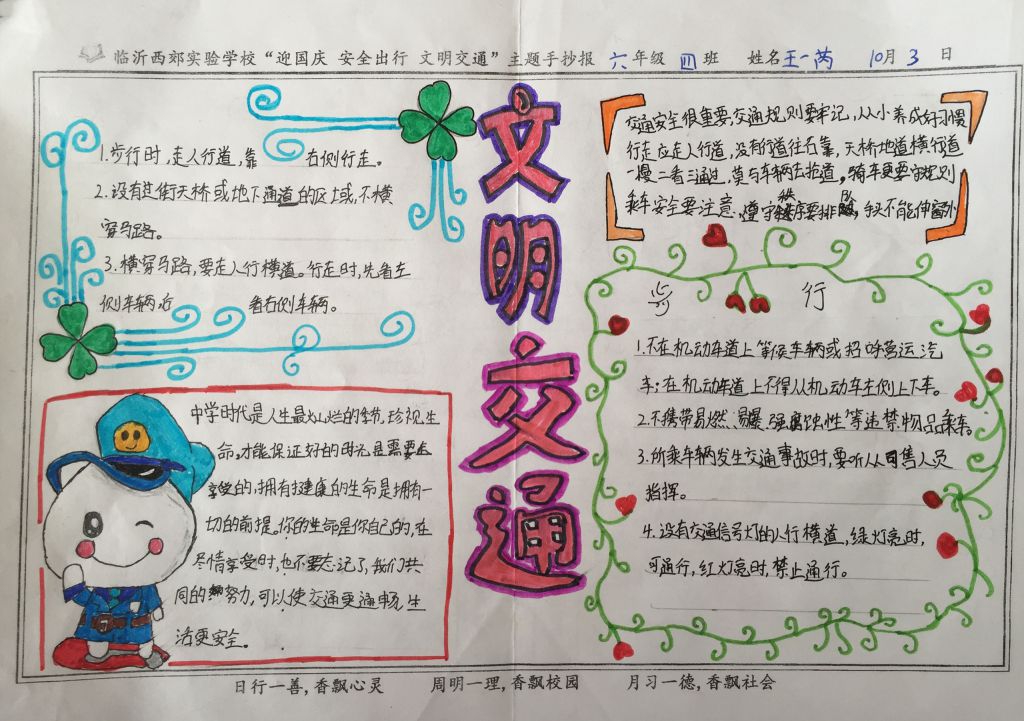 临沂西郊实验学校“迎国庆 安全出行 文明交通”主题手抄报 六年级 四班 姓名王一芮 10月3日
文明交通
1.步行时,走人行道,靠 右侧行走。
2.没有过街天桥或地下通道的区域,不横
穿马路。
3.横穿马路,要走人行横道。行走时,先看左
侧车辆后 看右侧车辆。
交通安全很重要,交通规则要牢记,从小养成好习惯
行走应走人行道,没有行道往右靠,天桥地道横行道
一慢二看三通过,莫与车辆去抢道。骑车更要守规则
乘车安全要注意,遵守秩序要排队,手头不能伸窗外
中学时代是人生最灿烂的季节,珍视生
命,才能保证好的时光是需要去
享受的,拥有健康的生命是拥有一
切的前提。你的生命是你自己的,在
尽情享受时,也不要忘记了,我们共
同的努力,可以使交通更通畅,生
活更安全。
步行
1.不在机动车道上等候车辆或招呼营运汽
车;在机动车道上不得从机动车左侧上下车。
2.不携带易燃、易爆、强腐蚀性等违禁物品乘车。
3.所乘车辆发生交通事故时,要听从司售人员
指挥。
4.没有交通信号灯的人行横道,绿灯亮时,
可通行,红灯亮时,禁止通行。
日行一善,香飘心灵 周明一理,香飘校园 月习一德,香飘社会